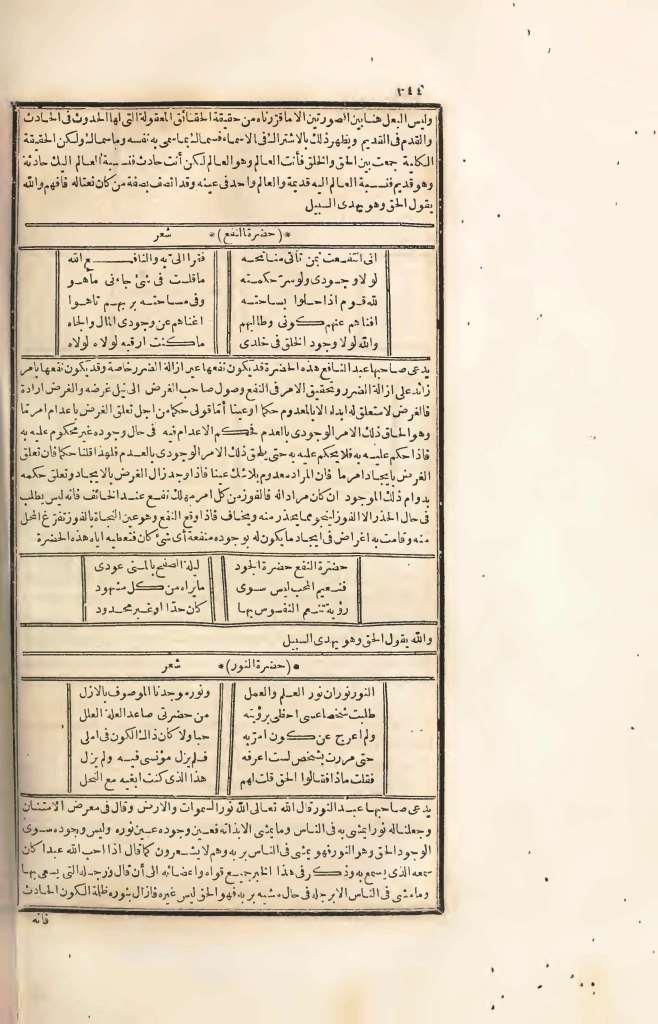 ٣٤٤
وليس الجعل هنا بين الصورتين الا ما قررناه من حقيقة الحقائق المعقولة التي لها الحدوث في الحادث
والقدم في القديم ويظهر ذلك بالاشتراك في الاسماء فسماك بما سمى به نفسه وما سماك ولكن الحقيقة
الكلية جمعت بين الحق والخلق فأنت العالم وهو العالم لكن أنت حادث فنسبة العالم اليك حادثة
وهو قديم فنسبة العالم اليه قديمة والعالم واحد في عينه وقد اتصف بصفة من كان نعتاله فافهم والله
يقول الحق وهو يهدى السبيل
*(حضرة النفع)* شعر
انى انتفعت بمن تأتى منائحه فقرا اليّ به والنافع الله
لولا وجودى ولولا سر حكمته ما قلت في شئ جاءنى ما هو
لله قوم اذا حلوا بساحته وفي مساحته بربهم تاهوا
افناهم عنهم كونى وطالبهم اغناهم عن وجودى المال والجاه
والله لولا وجود الخلق في خلدى ما كنت ارقبه لولاه لولاه
يدعى صاحبها عبد النافع هذه الحضرة قد يكون نفعها عين ازالة الضرر خاصة وقد يكون نفعها بامر
زائد على ازالة الضرر وتحقيق الامر في النفع وصول صاحب الغرض الى نيل غرضه والغرض ارادة
فالغرض لا متعلق له ابدا الا بالمعدوم حكما او عينا أمّا قولى حكما من اجل تعلق الغرض باعدام امر ما
وهو الحاق ذلك الامر الوجودى بالعدم فحكم الاعدام فيه في حال وجوده غير محكوم عليه به
فاذا حكم عليه به فلا يحكم عليه به حتى يلحق ذلك الامر الوجودى بالعدم فلهذا قلنا حكما فان تعلق
الغرض بايجاد امر ما فان المراد معدوم بلا شك عينا فاذا وجد زال الغرض بالايجاد وتعلق حكمه
بدوام ذلك الموجود ان كان مراداله فالفوز من كل امر مهلك نفع عند الخائف فانه ليس يطلب
في حال الحذر الا الفوز لينجو مما يحذر منه ويخاف فاذا وقع النفع وهو عين النجاة بالفوز تفرّغ المحل
منه وقامت به اغراض في ايجاد ما يكون له بوجوده منفعة أى شئ كان فتعطيه اياه هذه الحضرة
حضرة النفع حضرة الجود ليلة الصفح بالمنى عودى
فنعيم المحب ليس سوى ما يراه من كل مشهود
رؤية تنعم النفوس بها كان حذا اوغير محدود
والله يقول الحق وهو يهدى السبيل
*(حضرة النور)* شعر
النور نوران نور العلم والعمل ونور موجدنا الموصوف بالازل
طلبت شخصا عسى احظى برؤيته من حضرتى صاعد العلة العلل
ولم اعرج عن كون امرّ به حبا ولا كان ذاك الكون في املى
حتى مررت بشخص لست اعرفه فلم يزل مؤنسى فيه ولم يزل
فقلت ماذا فقالوا الحق قلت لهم هذا الذى كنت ابغيه مع النحل
يدعى صاحبها عبد النور قال الله تعالى الله نور السموات والارض وقال في معرض الامتنان
وجعلنا له نورا يمشى به في الناس وما يمشى الا بذاته فعين وجوده عين نوره وليس وجوده سوى
الوجود الحق وهو النور فهو يمشى في الناس بربه وهم لا يشعرون كما قال اذا احب الله عبدا كان
سمعه الذى يسمع به وذكر في هذا الخبر جميع قواه واعضائه الى أن قال ورجله التى يسعى بها
وما مشى في الناس الا برجله في حال مشيه بربه فهو الحق ليس غيره فازال بنوره ظلمة الكون الحادث
فانه